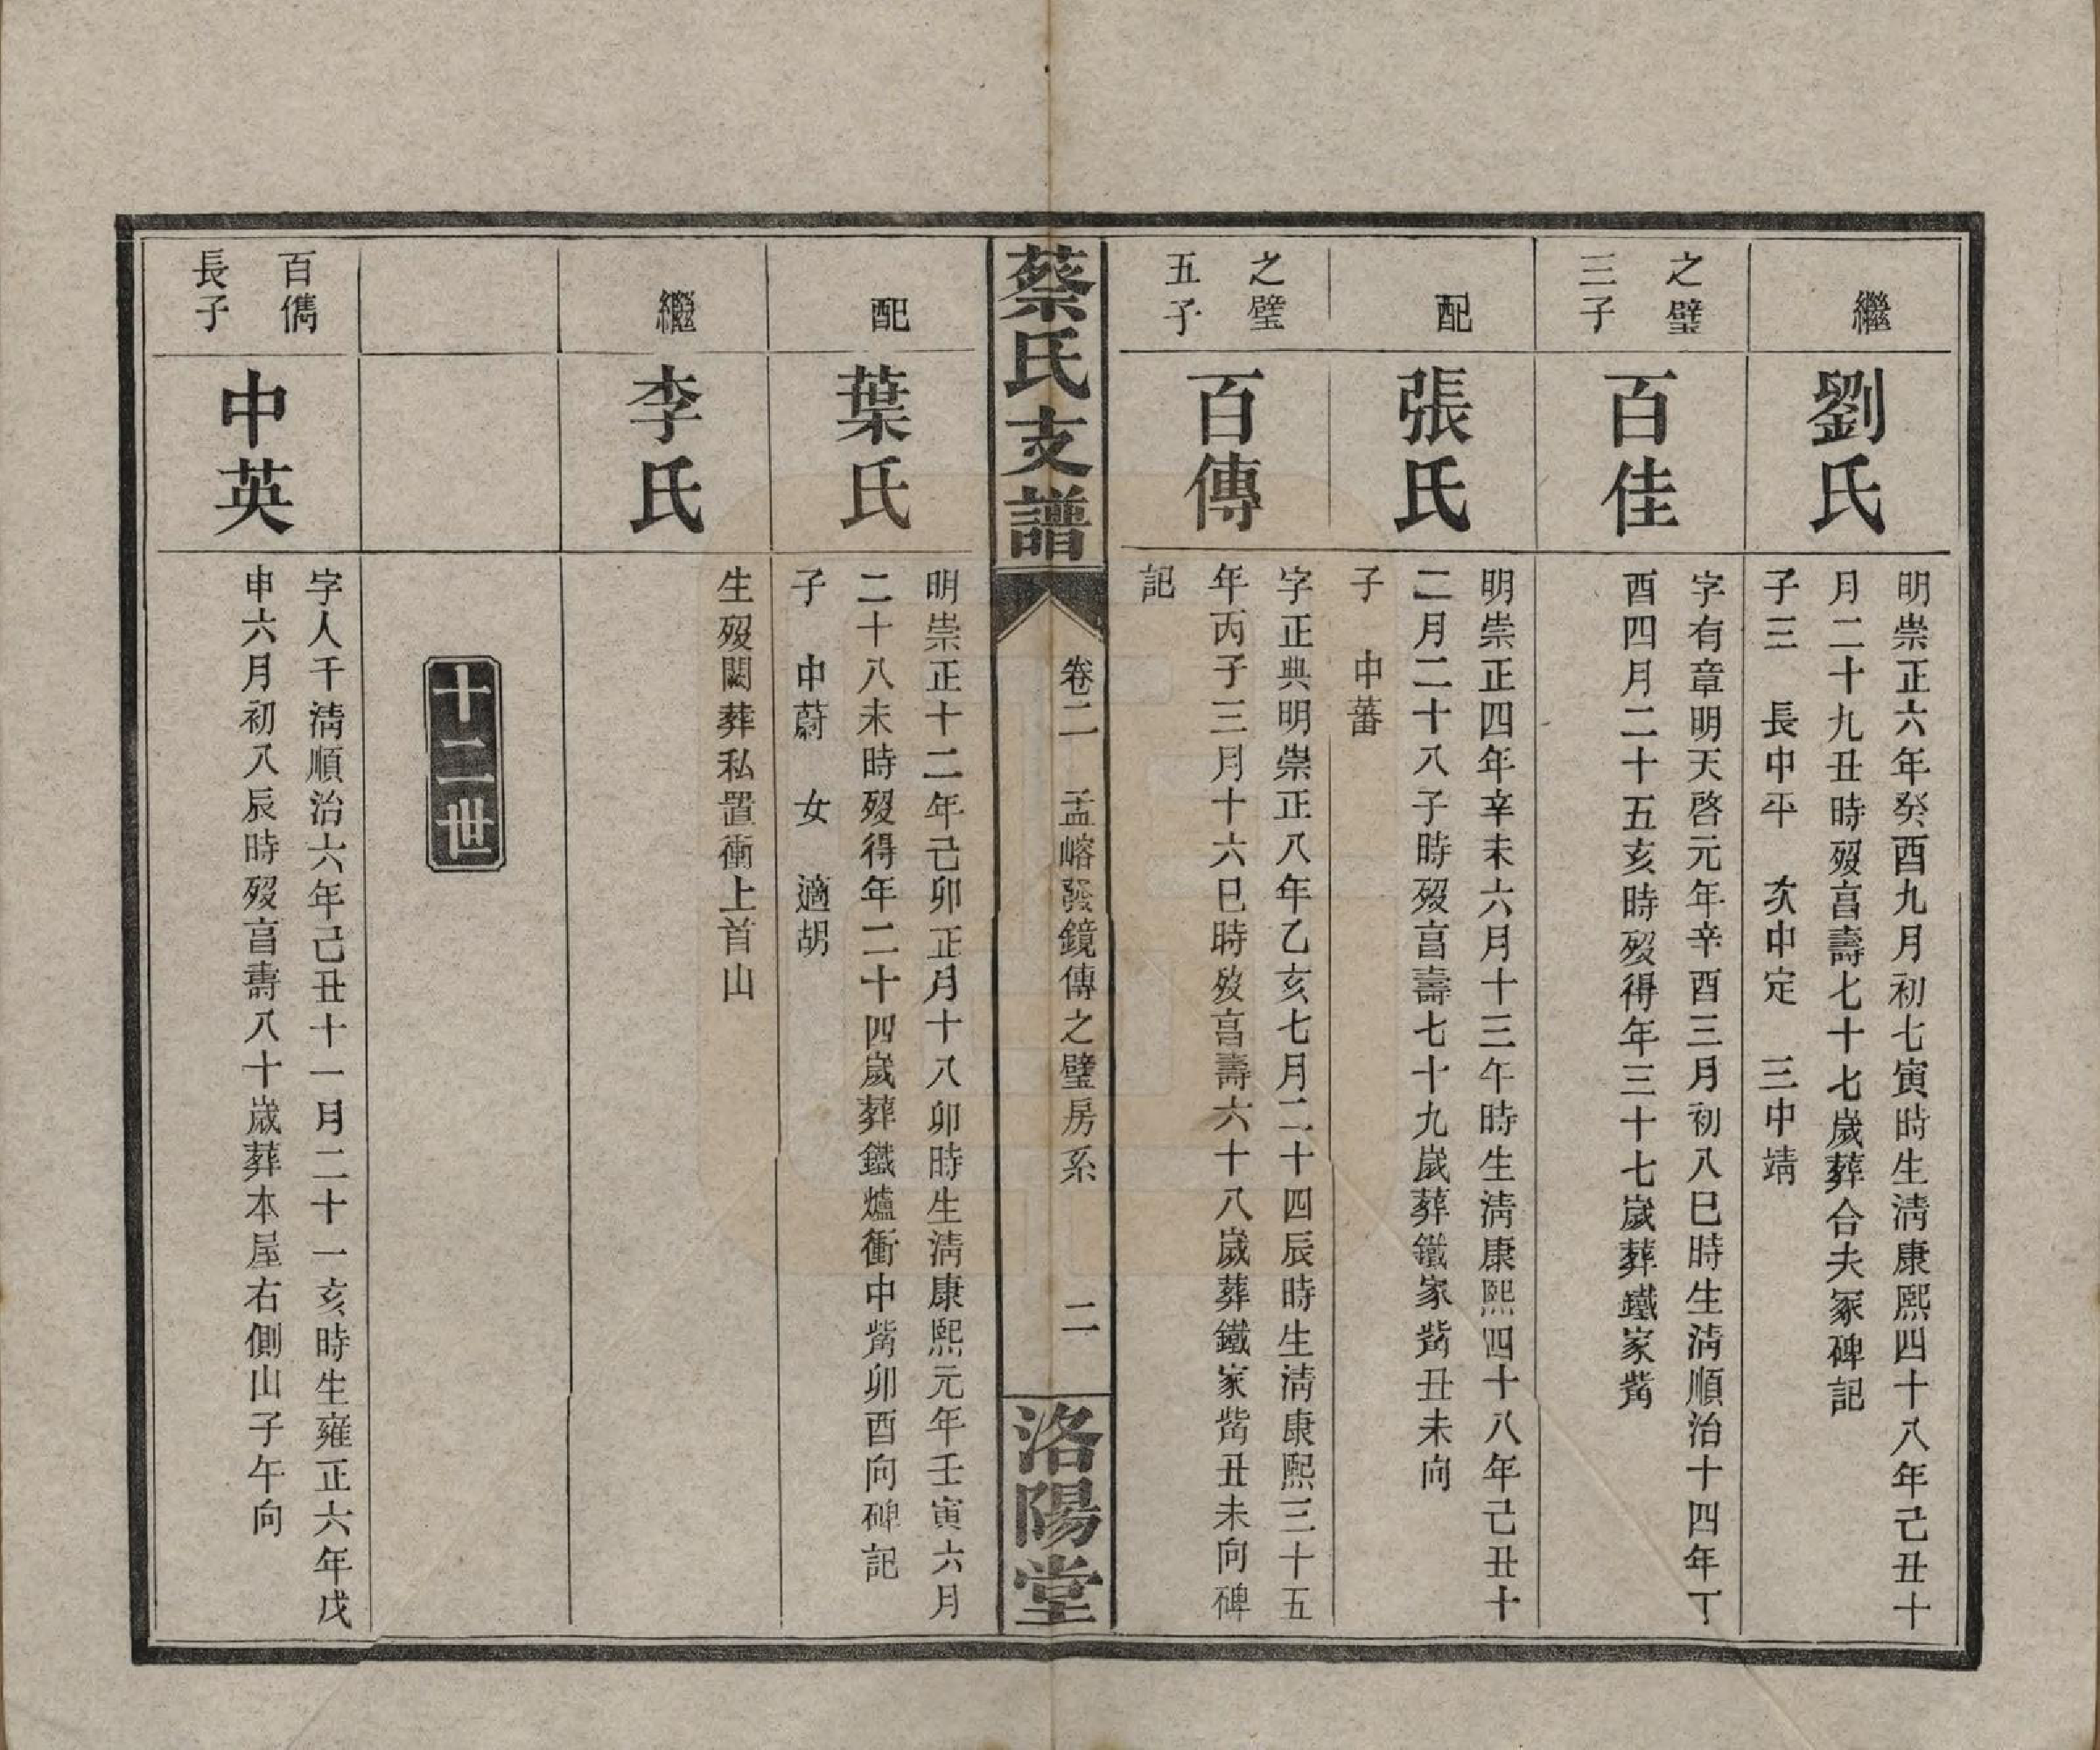 繼
劉氏
明崇正六年癸酉九月初七寅時生淸康熙四十八年己丑十
月二十九丑時歿亯壽七十七歲葬合夫冢碑記
子三　長中平　次中定　三中靖
之璧
三子
百佳
字有章明天啓元年辛酉三月初八巳時生淸順治十四年丁
酉四月二十五亥時歿得年三十七歲葬鐵家嘴
配
張氏
明崇正四年辛未六月十三午時生淸康熙四十八年己丑十
二月二十八子時歿亯壽七十九歲葬鐵家嘴丑未向
子　中蕃
之璧
五子
百傳
字正典明崇正八年乙亥七月二十四辰時生淸康熙三十五
年丙子三月十六巳時歿亯壽六十八歲葬鐵家嘴丑未向碑
記
蔡氏支譜
卷二　孟嵱發鏡傳之璧房系　二
洛陽堂
配
葉氏
明崇正十二年己卯正月十八卯時生淸康熙元年壬寅六月
二十八未時歿得年二十四歲葬鐵爐衝中嘴卯酉向碑記
子　中蔚　女　適胡
繼
李氏
生歿闕葬私置衝上首山
十二世
百儁
長子
中英
字人千淸順治六年己丑十一月二十一亥時生雍正六年戊
申六月初八辰時歿亯壽八十歲葬本屋右側山子午向